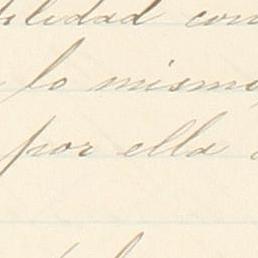 ilidad con
lo mismo
por ella